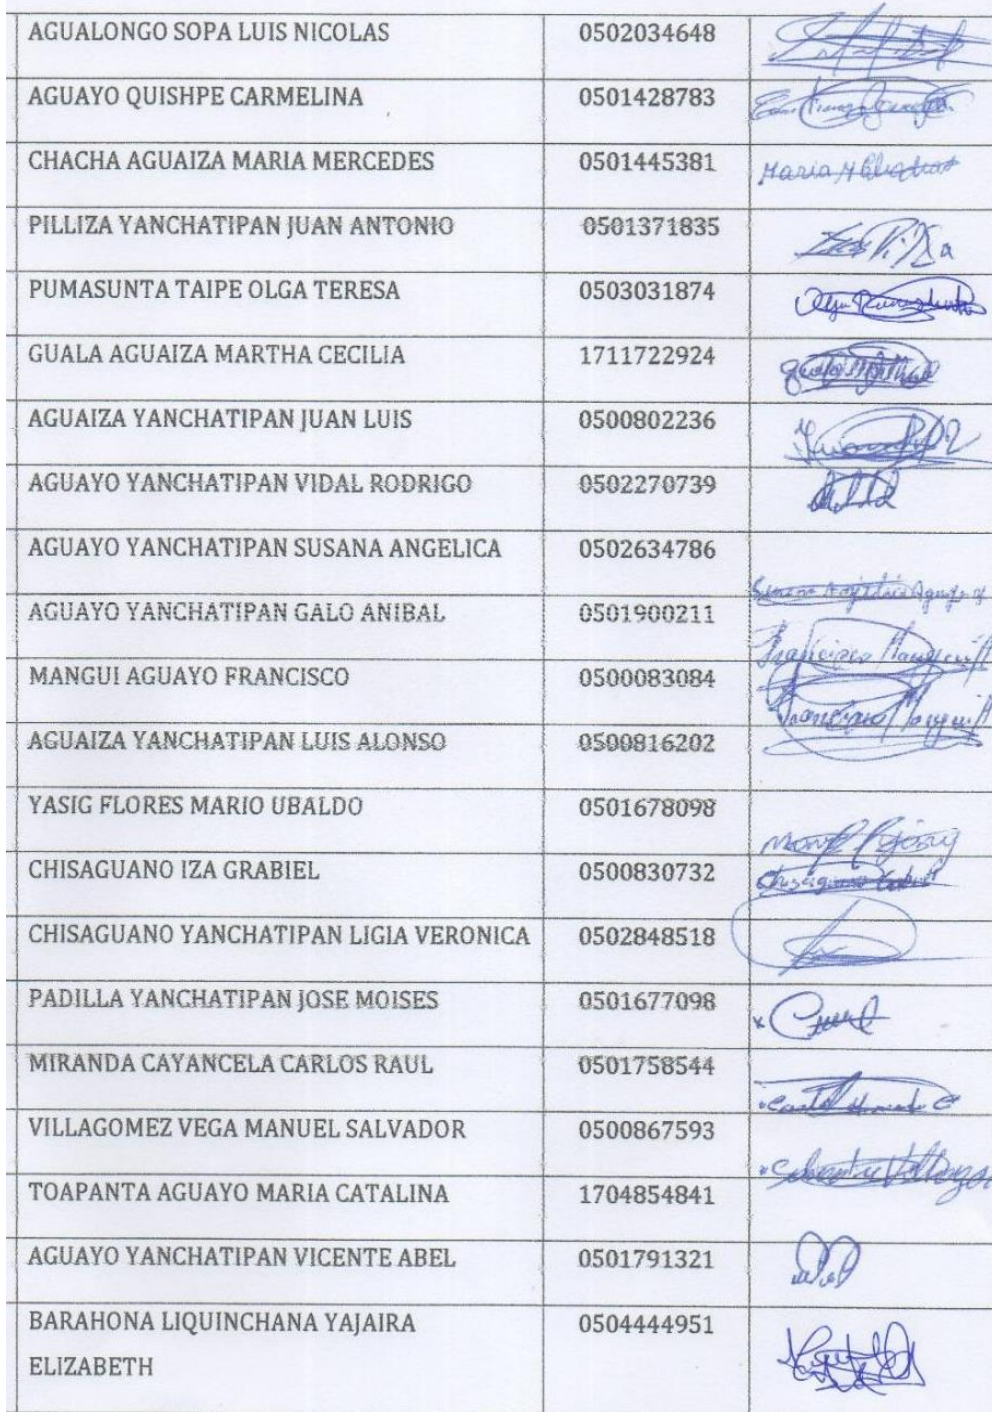 AGUALONGO SOPA LUIS NICOLAS 0502034648
AGUAYO QUISHPE CARMELINA 0501428783
CHACHA AGUAIZA MARIA MERCEDES 0501445381 Maria M
PILLIZA YANCHATIPAN JUAN ANTONIO 0501371835
PUMASUNTA TAIPE OLGA TERESA 0503031874
GUALA AGUAIZA MARTHA CECILIA 1711722924
AGUAIZA YANCHATIPAN JUAN LUIS 0500802236
AGUAYO YANCHATIPAN VIDAL RODRIGO 0502270739
AGUAYO YANCHATIPAN SUSANA ANGELICA 0502634786
AGUAYO YANCHATIPAN GALO ANIBAL 0501900211
Francisco Mangui
MANGUI AGUAYO FRANCISCO 0500083084
Francisco Mangui
AGUAIZA YANCHATIPAN LUIS ALONSO 0500816202
YASIG FLORES MARIO UBALDO 0501678098
CHISAGUANO IZA GRABIEL 0500830732 Chisaguano
CHISAGUANO YANCHATIPAN LIGIA VERONICA 0502848518
PADILLA YANCHATIPAN JOSE MOISES 0501677098
MIRANDA CAYANCELA CARLOS RAUL 0501758544
VILLAGOMEZ VEGA MANUEL SALVADOR 0500867593
TOAPANTA AGUAYO MARIA CATALINA 1704854841
AGUAYO YANCHATIPAN VICENTE ABEL 0501791321
BARAHONA LIQUINCHANA YAJAIRA 0504444951
ELIZABETH